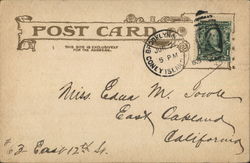 POST CARD
THIS SIDE IS EXCLUSIVELY
FOR THE ADDRESS.
BROOKLYN
5 PM
CONEY ISLAND
Miss. Edna M.
East Oakland
California
East 12th St.